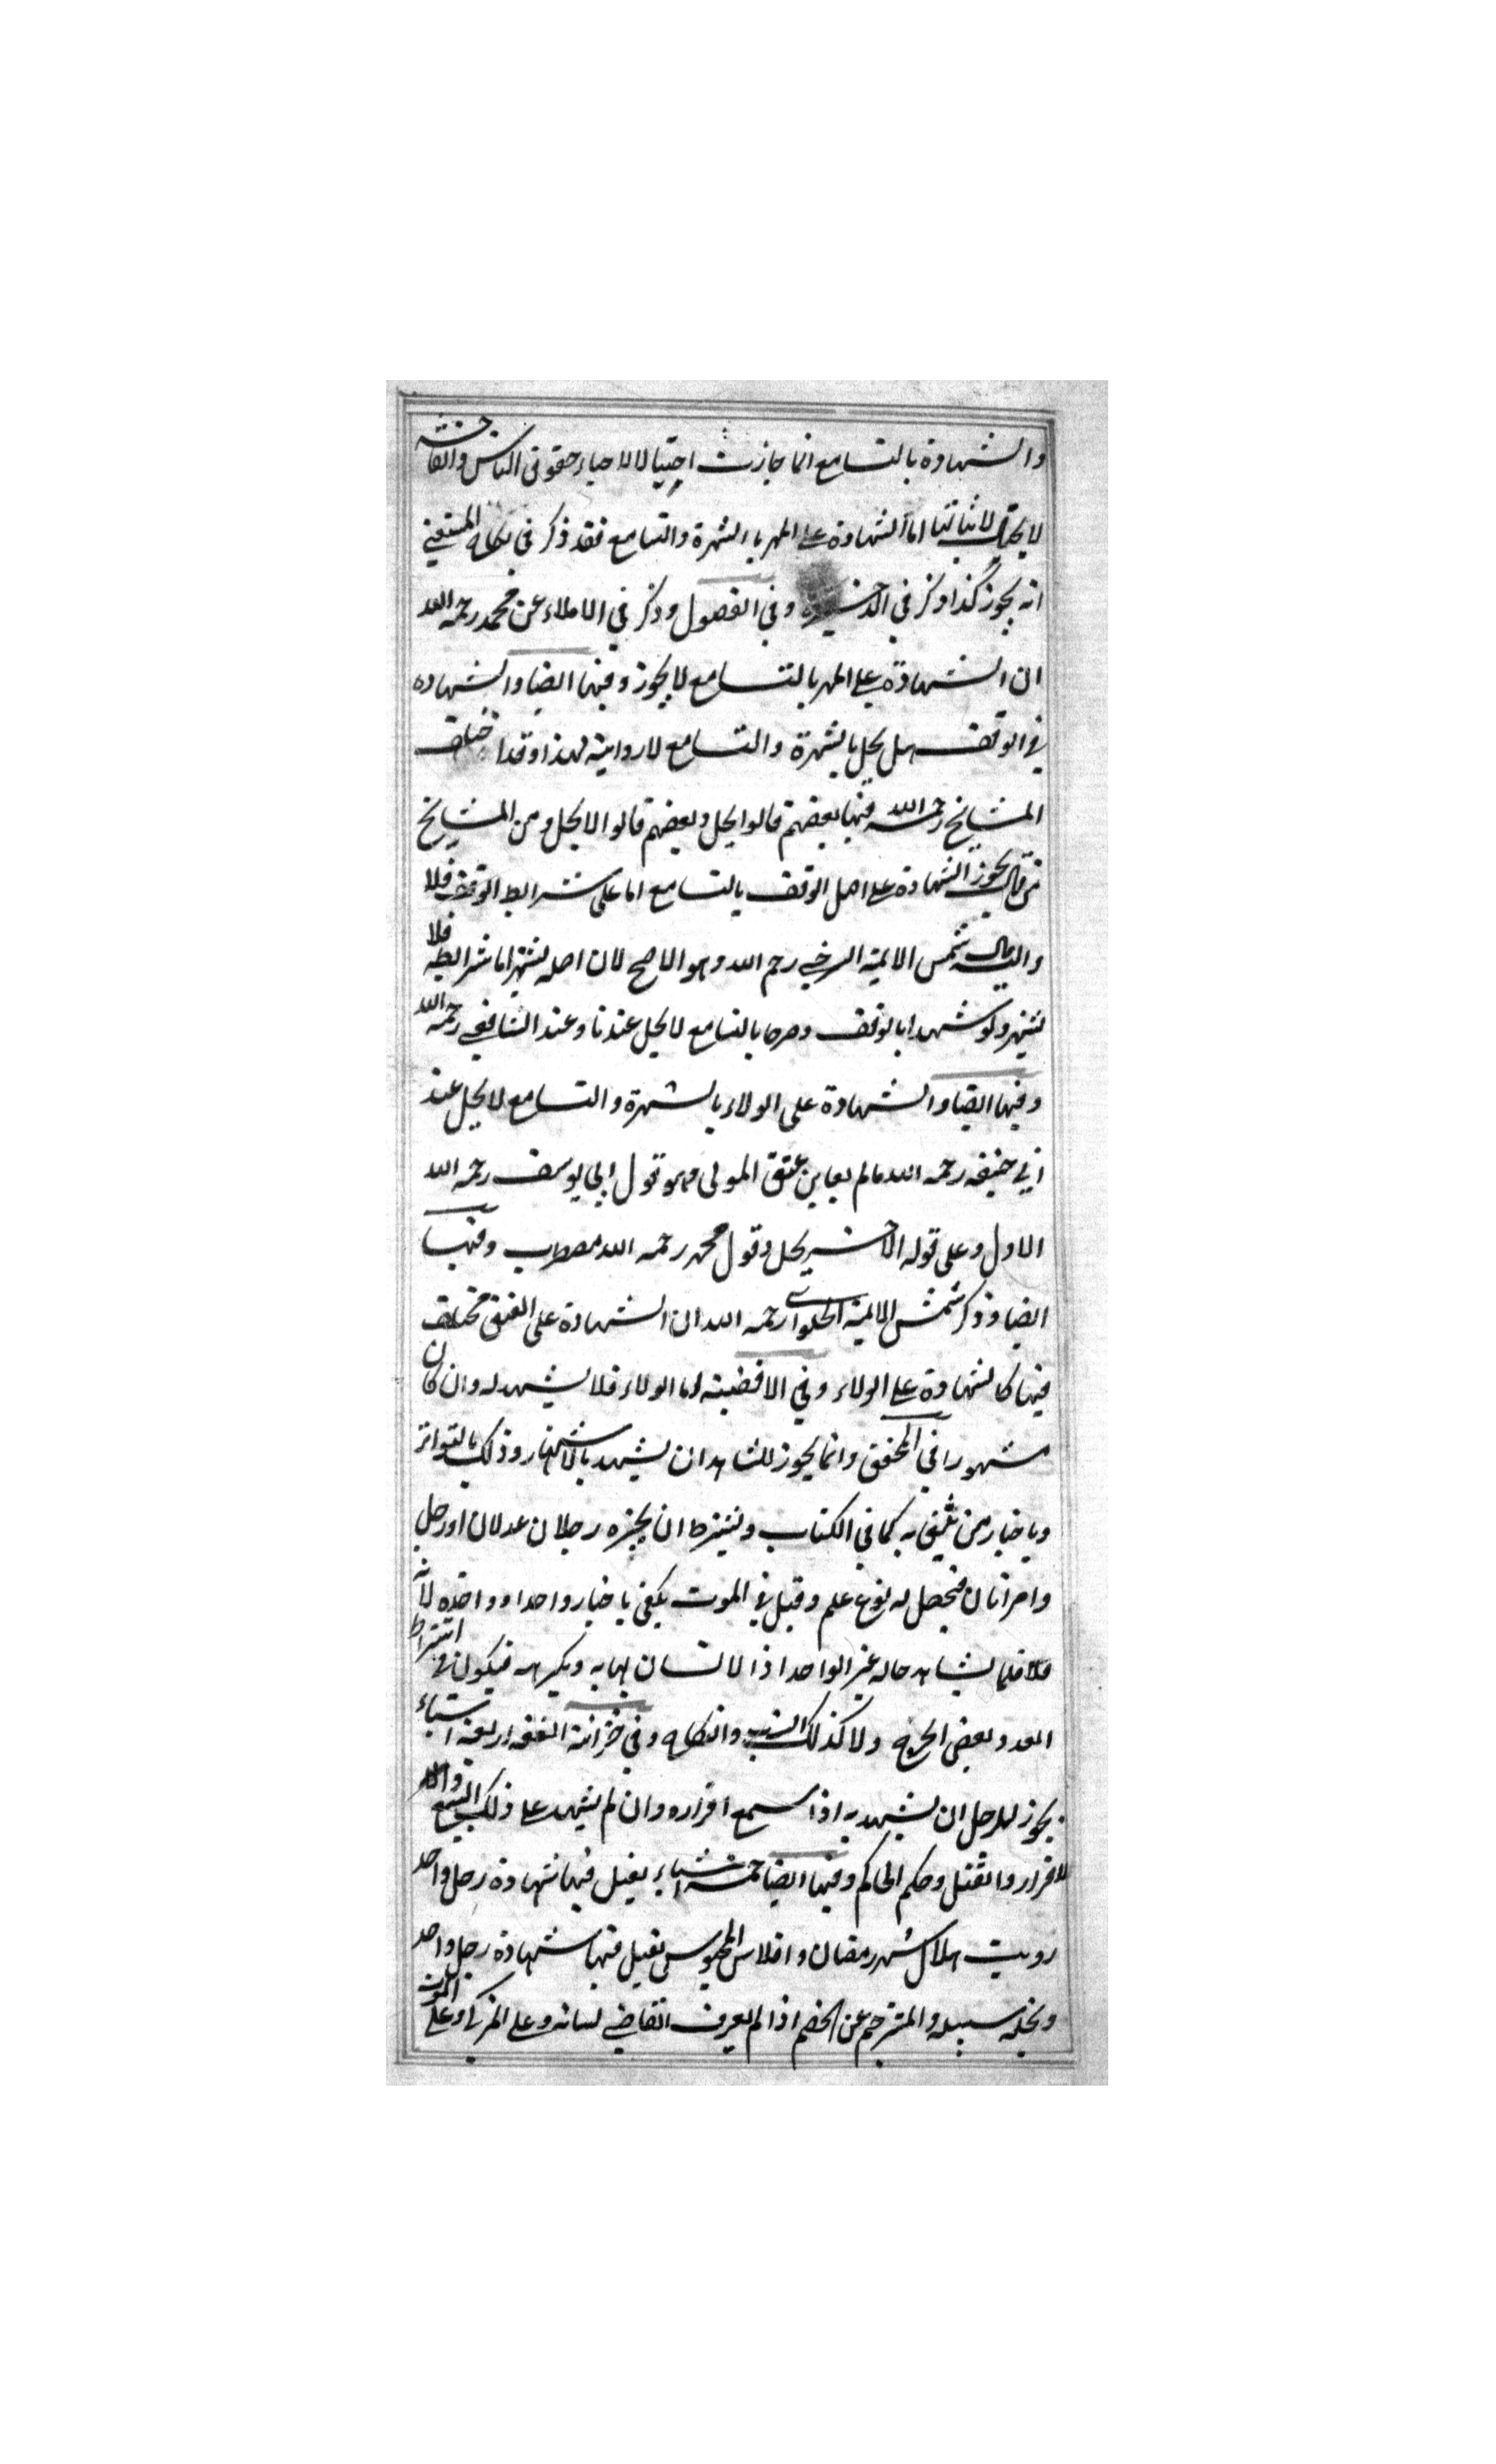 والشهادة بالتسامع انما جازت احتيالا لاحياء حقوق الناس والفاحشة
لا يحتال لاثباتها اما الشهادة على المهر بالشهرة والتسامع فقد ذكر في نكاح المنتقى
انه يجوز كذا ذكر في الذخيرة وفي الفصول وذكر في الاملاء عن محمد رحمه الله
ان الشهادة على المهر بالتسامع لا يجوز وفيها ايضا والشهادة
في الوقف هل يحل بالشهرة والتسامع لا رواية لهذا وقد اختلف
المشايخ رحمه الله فيها بعضهم قالوا يحل وبعضهم قالوا لا يحل ومن المشايخ
من قال يجوز الشهادة على اصل الوقف بالتسامع اما على شرايط الوقف فلا
واليه مال شمس الايمة السرخسي رحم الله وهو الاصح لان اصله يشتهر اما شرايطه فلا
يشتهر ولو شهدا بالوقف وصرحا بالتسامع لا يحل عندنا وعند الشافعي رحمه الله
وفيها ايضا والشهادة على الولاء بالشهرة والتسامع لا يحل عند
ابي حنيفه رحمه الله مالم يعاين عتق المولى وهو قول ابي يوسف رحمه الله
الاول وعلى قوله الاخر يحل وقول محمد رحمه الله مضطرب وفيها
ايضا وذكر شمس الايمة الحلواني رحمه الله ان الشهادة على العتق مختلف
فيها كالشهادة على الولاء وفي الاقضية اما الولاء فلا يشهد له وان كان
مشهورا في المحقق وانما يجوز للشاهد ان يشهد بالاشتهار وذلك بالتواتر
وباخبار من يثق به كما في الكتاب ويشترط ان يخبره رجلان عدلان او رجل
وامراتان فيحصل له نوع علم وقيل في الموت يكفي باخبار واحد او واحدة لانه
قلما يشاهد حاله غير الواحد اذ الانسان يهابه ويكرهه فيكون في اشتراط
العدد بعض الحرج ولا كذلك النسب والنكاح وفي خزانة الفقه اربعة اشياء
يجوز للرجل ان يشهد به اذا سمع اقراره وان لم يشهد على ذلك البيع والا
لاقرار والقتل وحكم الحاكم وفيها ايضا خمسة اشياء يقبل فيها شهادة رجل واحد
رويت هلال شهر رمضان وافلاس المحبوس يقبل فيها شهادة رجل واحد
ويخلى سبيله والمترجم عن الخصم اذا لم يعرف القاضي لسانه وعلى المزكي وعلى الموت